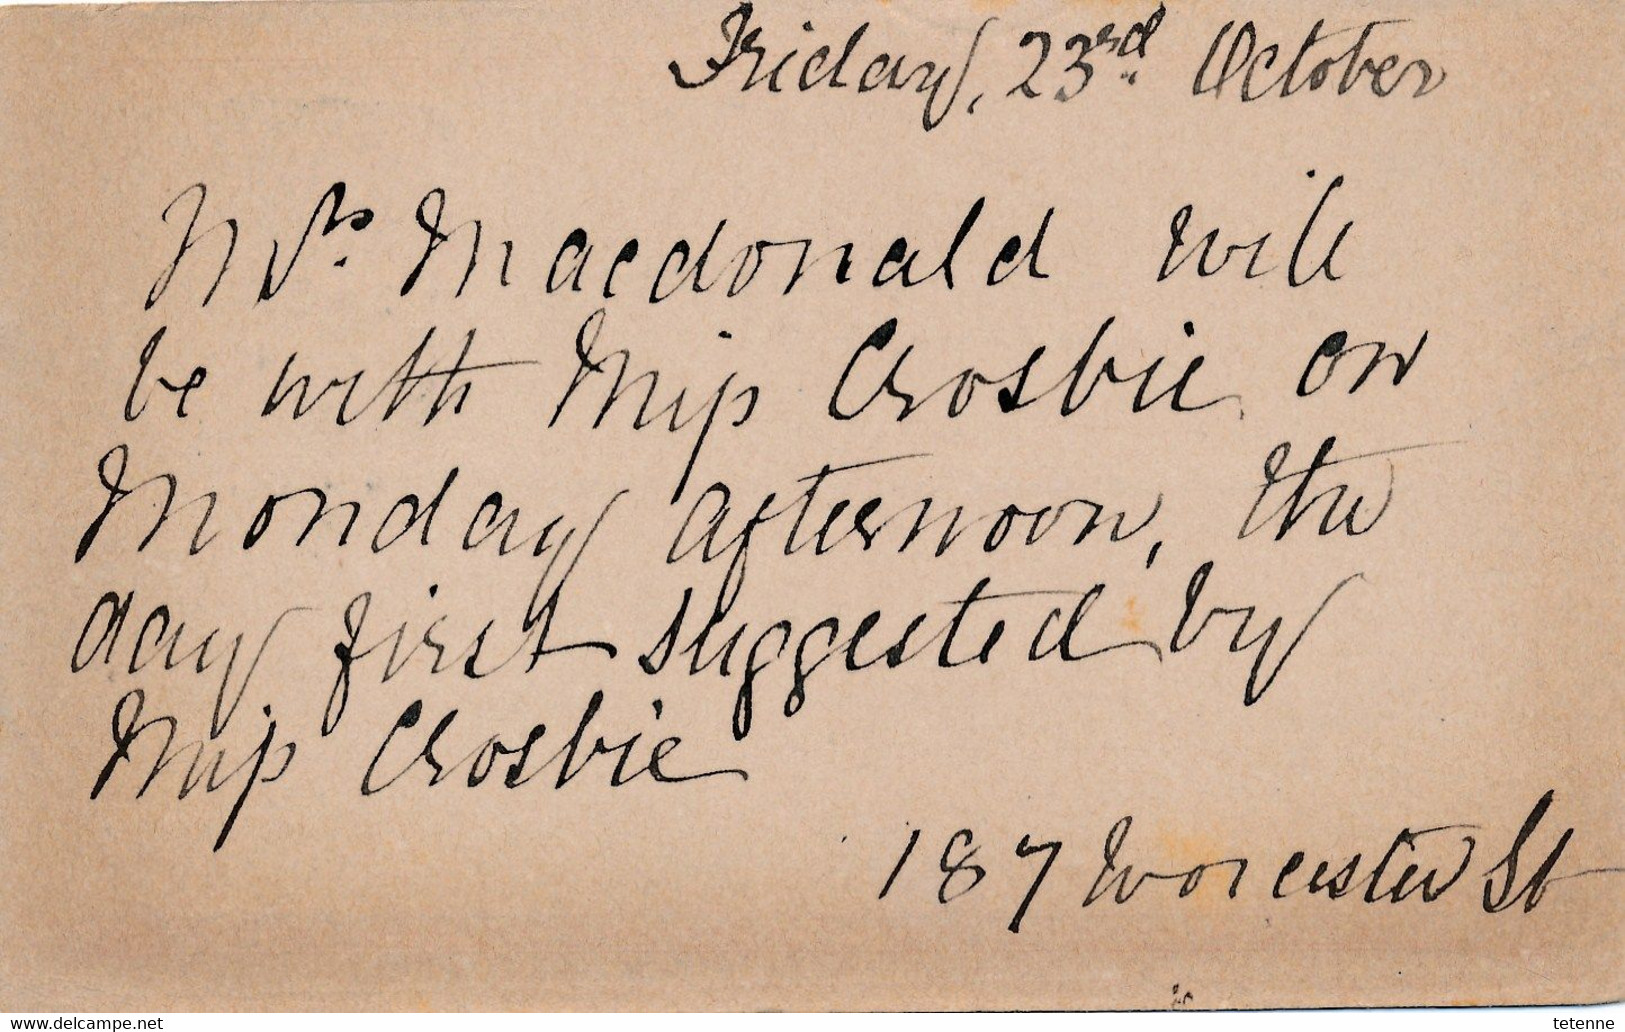 Friday, 23rd October
Mrs. Macdonald will
be with Miss Crosbie on
Monday afternoon, the
day first suggested by
Miss Crosbie
187 Worcester St
www.delcampe.net
tetenne